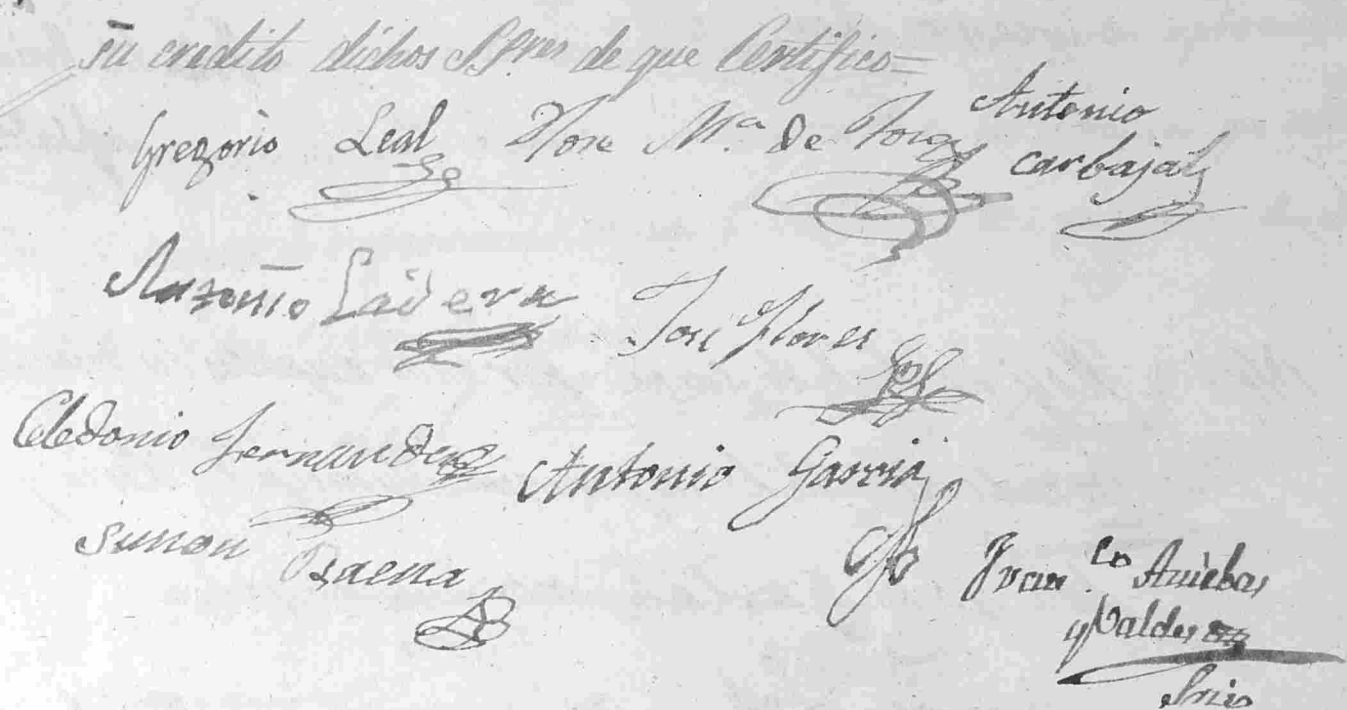 su credito dichos SS.res de que Certifico=
Gregorio Leal Jose M.a de Antonio
carbajal
Antonio Ladera Jose Flores
Celedonio Fernandez Antonio Garcia
Simon Baena
Fran.co
y Valder
Srio